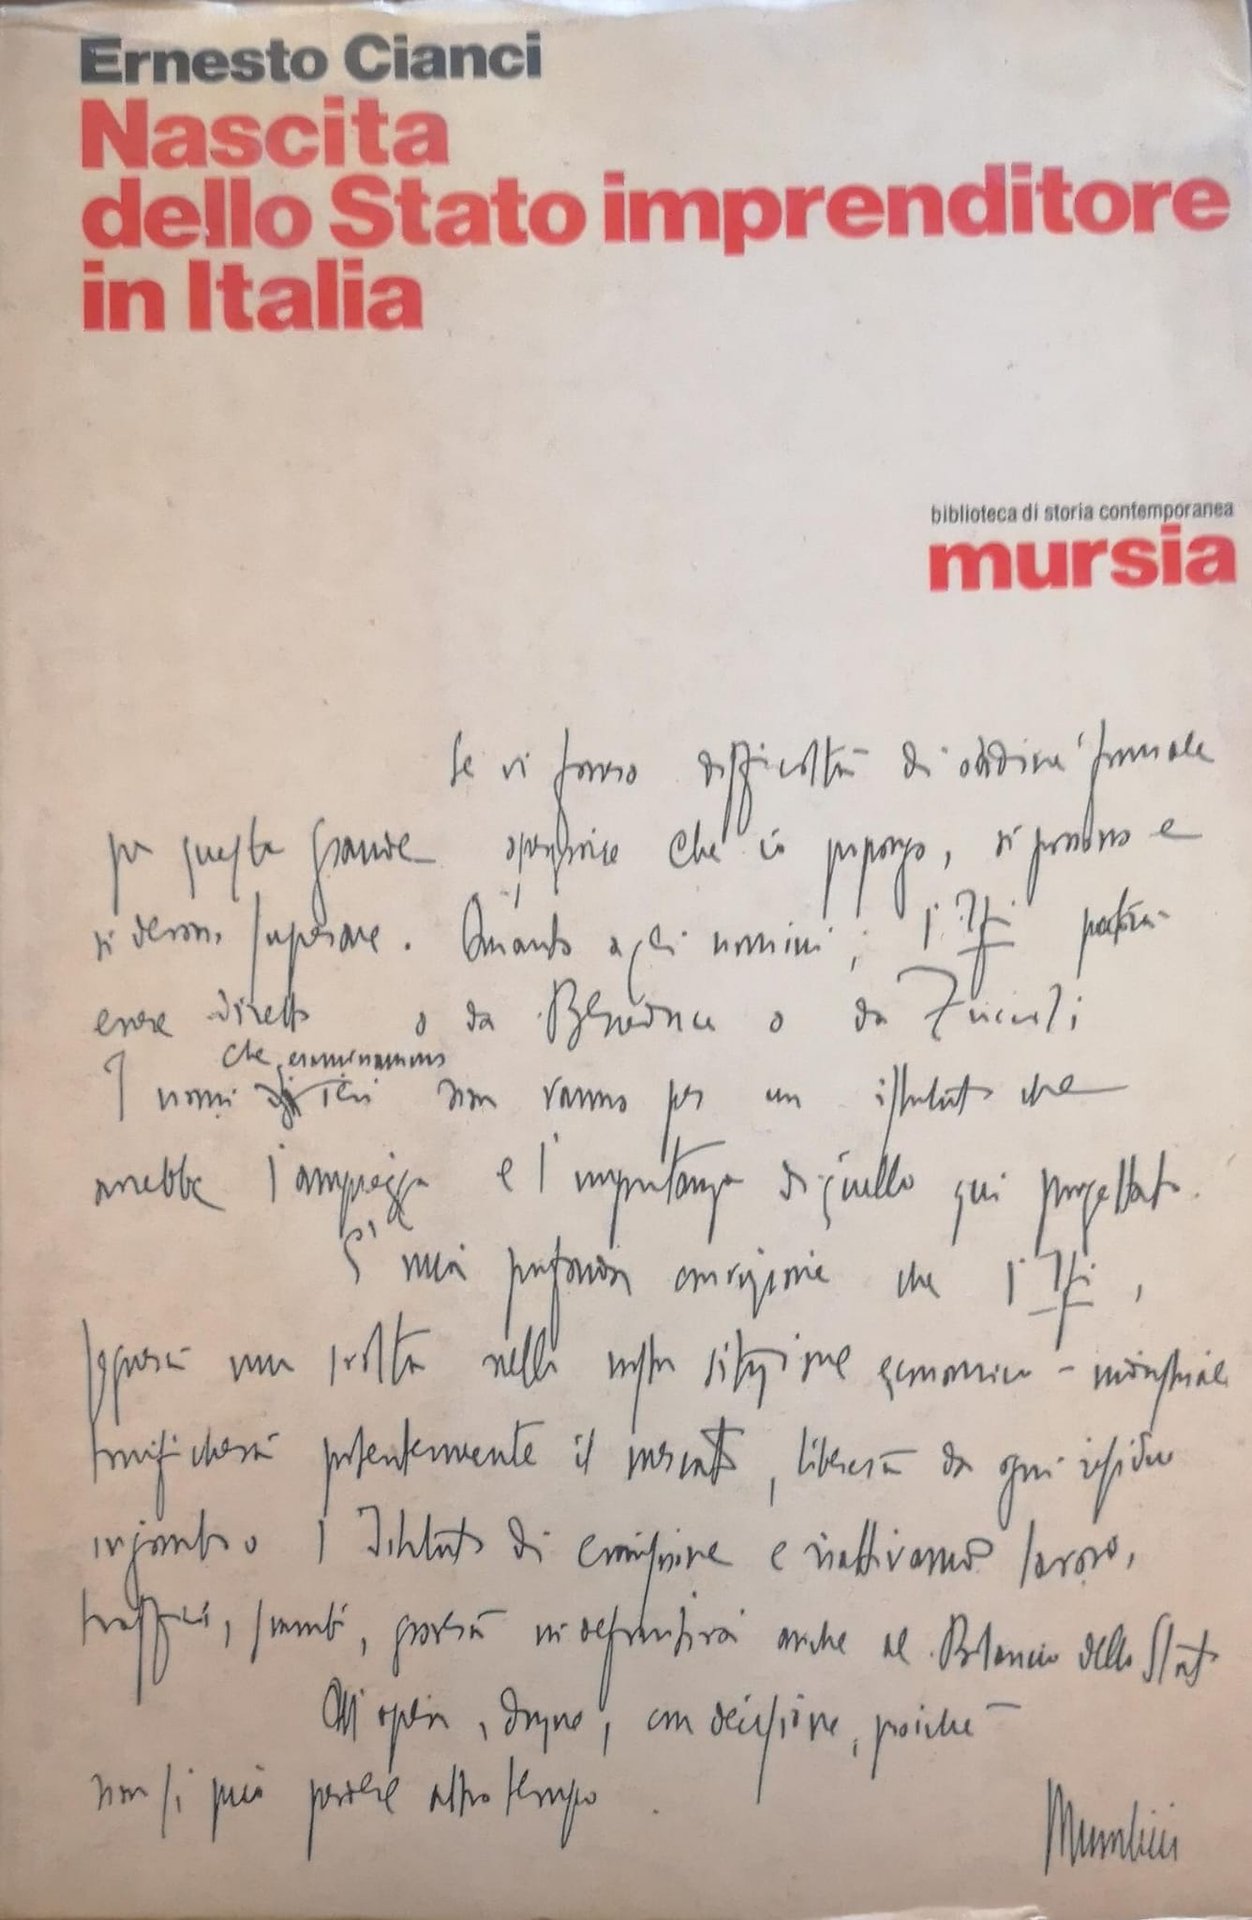 Ernesto Cianci
Nascita
dello Stato imprenditore
in Italia
biblioteca di storia contemporanea
mursia
Se vi fossero difficoltà di ordine formale
per questa grande operazione che io propongo, si possono e
si devono superare. Quanto agli uomini; l'Ifi potrà
essere diretto o da Beneduce o da
che esaminammo
I nomi ieri non vanno per un istituto che
avrebbe l'ampiezza e l'importanza di quello qui progettato.
E' mia profonda convinzione che l'Ifi,
segnerà una svolta nella nostra situazione economico-industriale
tonificherà potentemente il mercato, libererà da ogni residuo
ingombro l'Istituto di emissione e riattivando lavoro,
traffici, scambi, gioverà in definitiva anche al Bilancio dello Stato
All'opera, dunque, con decisione, poichè
non si può perdere altro tempo.
Mussolini